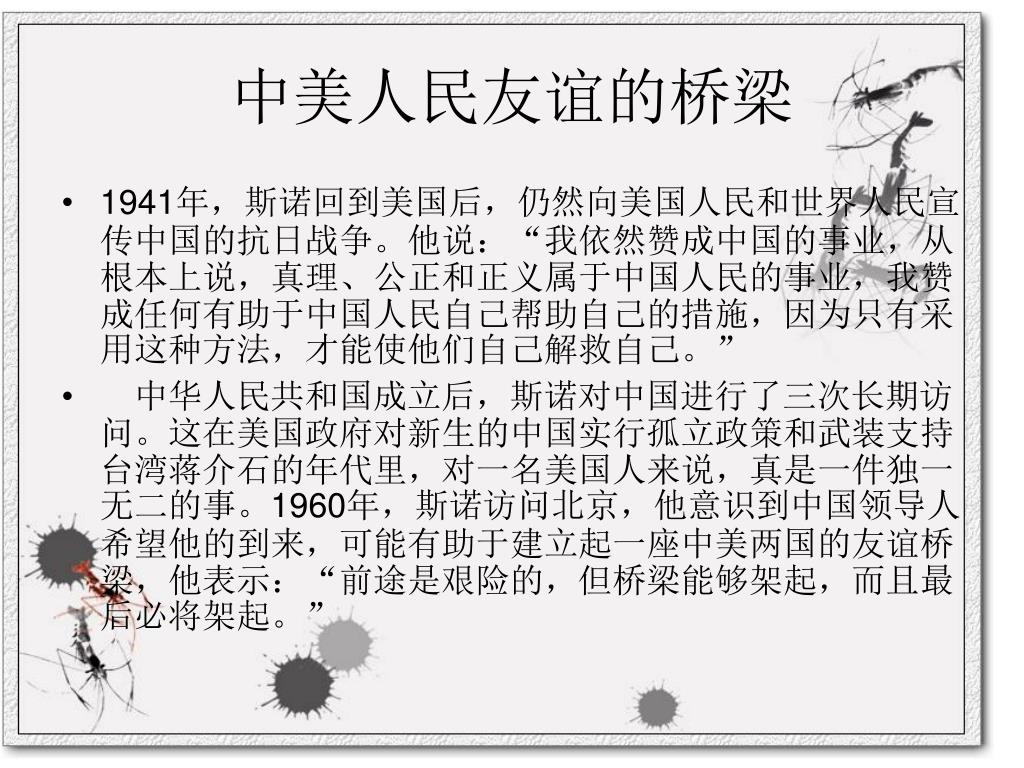 中美人民友谊的桥梁
• 1941年，斯诺回到美国后，仍然向美国人民和世界人民宣
传中国的抗日战争。他说：“我依然赞成中国的事业，从
根本上说，真理、公正和正义属于中国人民的事业，我赞
成任何有助于中国人民自己帮助自己的措施，因为只有采
用这种方法，才能使他们自己解救自己。”
• 中华人民共和国成立后，斯诺对中国进行了三次长期访
问。这在美国政府对新生的中国实行孤立政策和武装支持
台湾蒋介石的年代里，对一名美国人来说，真是一件独一
无二的事。1960年，斯诺访问北京，他意识到中国领导人
希望他的到来，可能有助于建立起一座中美两国的友谊桥
梁，他表示：“前途是艰险的，但桥梁能够架起，而且最
后必将架起。”